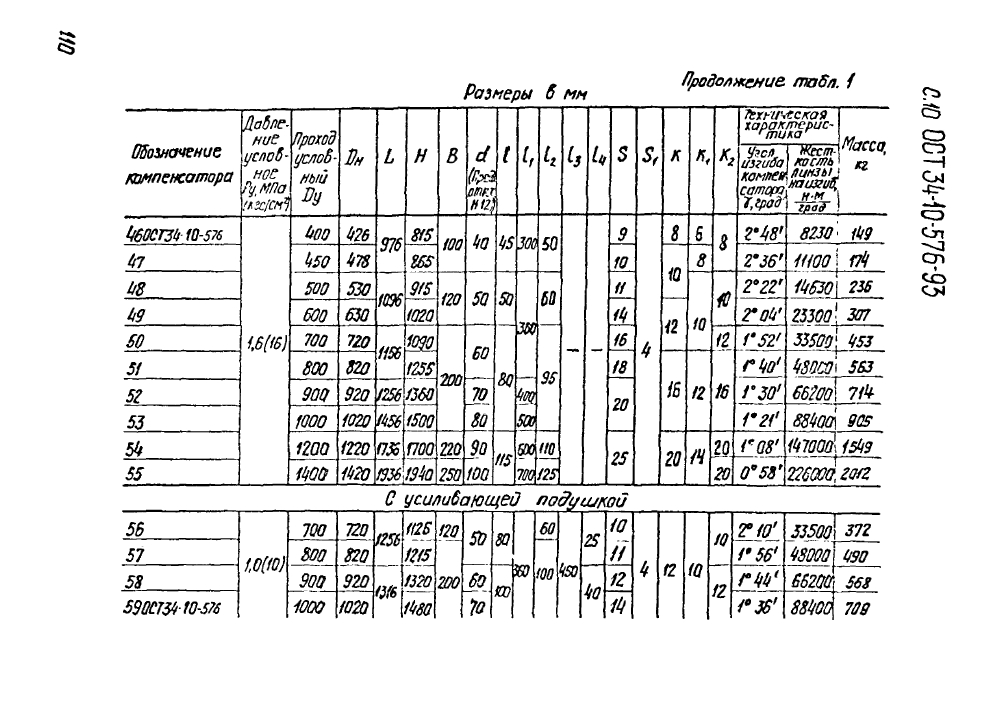 110
с.10 ОСТ 34-10-576-93
Продолжение табл. 1
Размеры в мм
Обозначение компенсатора | Давление условное Ру, МПа (кгс/см²) | Проход условный Dу | Dн | L | H | B | d (Пред. откл. H12) | l | l₁ | l₂ | l₃ | l₄ | S | S₁ | K | K₁ | K₂ | Техническая характеристика | Масса, кг
Угол изгиба компенсатора γ, град | Жесткость линзы на изгиб, Н·м/град
46 ОСТ34-10-576 | 1,6(16) | 400 | 426 | 976 | 815 | 100 | 40 | 45 | 300 | 50 | — | — | 9 | 4 | 8 | 6 | 8 | 2°48' | 8230 | 149
47 | 450 | 478 | 865 | 10 | 10 | 8 | 2°36' | 11100 | 174
48 | 500 | 530 | 1096 | 915 | 120 | 50 | 50 | 360 | 60 | 11 | 10 | 10 | 2°22' | 14630 | 236
49 | 600 | 630 | 1020 | 14 | 12 | 2°04' | 23300 | 307
50 | 700 | 720 | 1156 | 1090 | 200 | 60 | 80 | 95 | 16 | 12 | 1°52' | 33500 | 453
51 | 800 | 820 | 1255 | 18 | 16 | 12 | 16 | 1°40' | 48000 | 563
52 | 900 | 920 | 1256 | 1360 | 70 | 400 | 20 | 1°30' | 66200 | 714
53 | 1000 | 1020 | 1456 | 1500 | 80 | 500 | 1°21' | 88400 | 905
54 | 1200 | 1220 | 1736 | 1700 | 220 | 90 | 115 | 600 | 110 | 25 | 20 | 14 | 20 | 1°08' | 147000 | 1549
55 | 1400 | 1420 | 1936 | 1940 | 250 | 100 | 700 | 125 | 20 | 0°58' | 226000 | 2012
С усиливающей подушкой
56 | 1,0(10) | 700 | 720 | 1256 | 1125 | 120 | 50 | 80 | 360 | 60 | 450 | 25 | 10 | 4 | 12 | 10 | 10 | 2°10' | 33500 | 372
57 | 800 | 820 | 1215 | 200 | 100 | 11 | 1°56' | 48000 | 490
58 | 900 | 920 | 1316 | 1320 | 60 | 100 | 40 | 12 | 12 | 1°44' | 66200 | 568
59 ОСТ34-10-576 | 1000 | 1020 | 1480 | 70 | 14 | 1°36' | 88400 | 709